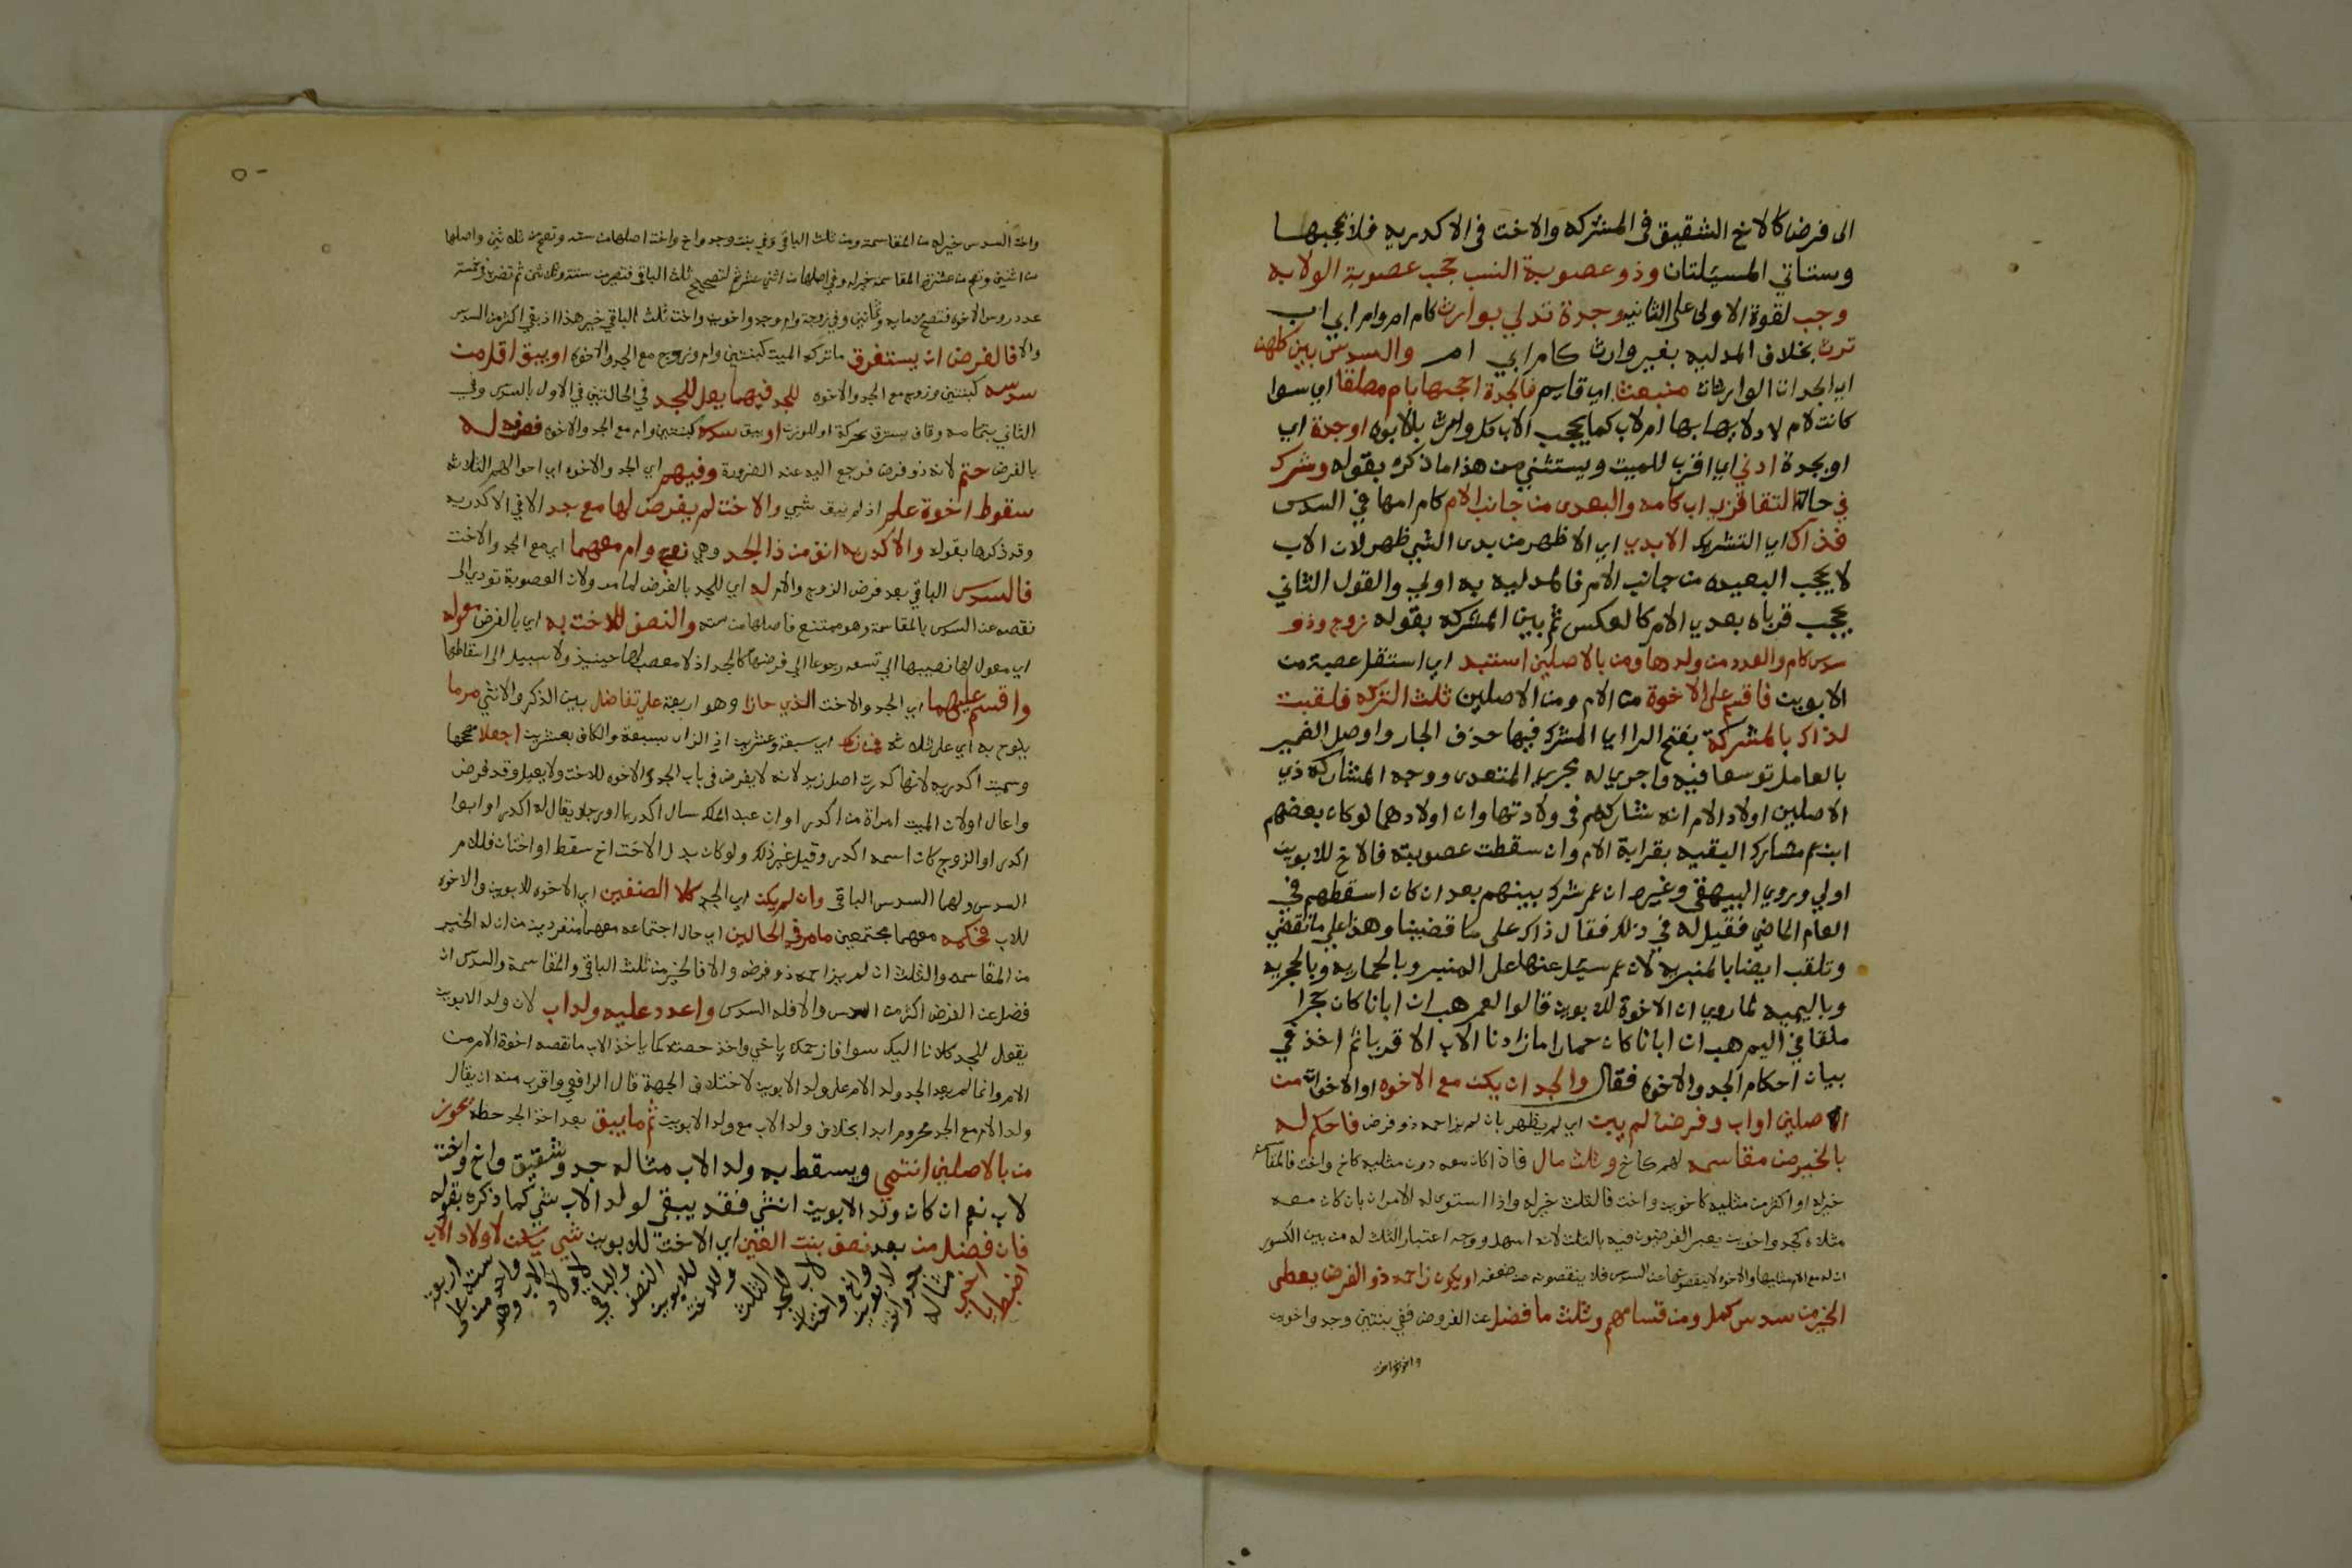 الى فرض كالاخ الشقيق فى المشتركه والاخت فى الاكدريه فلا يحجبها
وستاتي المسيلتان وذو عصوبة النسب حجب عصوبة الولايه
وجب لقوة الاولى على الثانيه وجدة تدلي بوارث كام ام وام ابي اب
ترث بخلاف المدليه بغير وارث كام ابي ام والسدس بين كلهن
اي الجدات الوارثات منبعث اي قاسم فالجدة احجبها بام مطلقا اي سوا
كانت لام لادلايها بها ام لاب كما يحجب الاب كل وارث بالابوه او جدة اي
او بجدة ادني اي اقرب للميت ويستثني من هذا ما ذكره بقوله وشرك
في حالة التقا قربى اب كامه والبعدى من جانب الام كام امها في السدس
فذاك اي التشريك الابدي اي الاظهر من بدى الشي ظهر لان الاب
لا يحجب البعيده من جانب الام فالمدليه به اولي والقول الثاني
يحجب قرباه بعدي الام كالعكس ثم بين المشركه بقوله زوج وذو
سدس كام والعدد من ولدها ومن بالاصلين استبد اي استقل عصبة من
الابوين فاقسم على الاخوة من الام ومن الاصلين ثلث التركه فلقبت
لذاك بالمشركة بفتح الرا اي المشرك فيها حذف الجار واوصل الضمير
بالعامل توسعا فيه واجري له مجرى المتعدى ووجه المشاركه ذي
الاصلين اولاد الام انه شاركهم فى ولادتها وان اولادهما لو كان بعضهم
ابن عم مشارك البقيه بقرابة الام وان سقطت عصوبته فالاخ للابوين
اولي وروي البيهقى وغيره ان عمر شرك بينهم بعد ان كان اسقطهم في
العام الماضي فقيل له في ذلك فقال ذاك على ما قضينا وهذا علي ما نقضي
وتلقب ايضا بالمنبريه لان عمر سيل عنها على المنبر وبالحماريه وبالحجريه
وباليميه لما روي ان الاخوة للابوين قالوا لعمر هب ان ابانا كان حجرا
ملقا في اليم هب ان ابانا كان حمارا ما زادنا الاب الا قربا ثم اخذ في
بيان احكام الجد والاخوه فقال والجد ان يكن مع الاخوه او الاخوات من
الاصلين او اب وفرض لم يبن اي لم يظهر بان لم يزاحمه ذو فرض فاحكم له
بالخير من مقاسمه لهم كاخ وثلث مال فاذا كان معه دون مثليه كاخ واخت فالمقاسمة
خير له او اكثر من مثليه كاخوين واخت فالثلث خير له واذا استوى له الامران بان كان معه
مثلاه كجد واخوين يعبر الفرضيون فيه بالثلث لانه اسهل ووجه اعتبار الثلث له من بين الكسور
ان له مع الام مثليها والاخوه لا ينقصونها عن السدس فلا ينقصونه عن ضعفه او يكون زاحمه ذو الفرض يعطى
الخير من سدس كمل ومن قسامهم وثلث ما فضل عن الفروض ففي بنتين وجد واخوين
واخت السدس خير له من المقاسمة ومن ثلث الباقي وفي بنت وجد واخ واخت اصلها من سته وتصح من ثلاثين واصلها
من اثنين وتصح من عشرة المقاسمة خير له وفي اصلها من اثني عشر ثم لتصحيح ثلث الباقي فتصير من ستة وثلاثين ثم تضرب في خمسة
عدد روس الاخوه فتصح من مايه وثمانين وفي زوجة وام وجد واخوين واخت ثلث الباقي خير هذا اذ بقي اكثر من السدس
والا فالفرض ان يستغرق ما تركه الميت كبنتين وام وزوج مع الجد والاخوة او يبق اقل من
سدسه كبنتين وزوج مع الجد والاخوه للجد فيهما يعل للجد في الحالتين في الاول بالسدس وفي
الثاني بتمامه وقاف يسترق محركة او للوزن او يبق سدسه كبنتين وام مع الجد والاخوه فصرفه له
بالفرض حتم لانه ذو فرض فرجع اليه عند الضرورة وفيهم اي الجد والاخوه اي احوالهم الثلاثه
سقوط اخوة علم اذ لم يبق شي والاخت لم يفرض لها مع جد الا في الاكدريه
وقد ذكرها بقوله والاكدريه انف من ذا الجد وهي زوج وام معهما اي مع الجد والاخت
فالسدس الباقي بعد فرض الزوج والام له اي للجد بالفرض لما مر ولان العصوبة تودي الى
نقصه عن السدس بالمقاسمة وهو ممتنع فاصلها من سته والنصف للاخت به اي بالفرض عوله
اي معول لها نصيبها الى تسعه رجوعا الى فرضها كالجد اذ لا معصب لها حينيذ ولا سبيل الى اسقاطها
واقسم عليهما اي الجد والاخت الذي حازا وهو اربعة علي تفاضل بين الذكر والانثي مر ما
يلوح به اي على ثلاثه اي سبعة وعشرين اذ الزاى سبعة والكاف بعشرين اجعلا صححها
وسميت اكدريه لانها كدرت اصل زيد لانه لا يفرض فى باب الجد والاخوه للاخت ولا يعيل وقد فرض
واعال او لان الميت امراة من اكدر او ان عبد الملك سال اكدريا او رجلا يقال له اكدر او ابوا
اكدر او الزوج كان اسمه اكدر وقيل غير ذلك ولو كان بدل الاخت اخ سقط او اختان فللام
السدس ولهما السدس الباقي وان لم يكن اي الجد كلا الصنفين اي الاخوه للابوين والاخوه
للاب فحكمه معهما مجتمعين ما مر في الحالين اي حال اجتماعه معهما منفردين من ان له الخير
من المقاسمه والثلث ان لم يزاحمه ذو فرضه والا فالخير من ثلث الباقي والمقاسمة والسدس ان
فضل عن الفرض اكثر من السدس والا فله السدس واعدد عليه ولد اب لان ولد الابوين
يقول للجد كلانا اليك سوا فازحمك باخي واخذ حصته كما ياخذ الاب ما نقصه اخوة الام من
الام وانما لم يعد الجد ولد الام على ولد الابوين لاختلاف الجهة قال الرافعي واقرب منه ان يقال
ولد الام مع الجد محروم ابدا بخلاف ولد الاب مع ولد الابوين ثم ما يبق بعد اخذ الجد حظه يحوز
من بالاصلين انتمي ويسقط به ولد الاب مثاله جد وشقيق واخ واخت
لاب نعم ان كان ولد الابوين انثي فقد يبقي لولد الاب شي كما ذكره بقوله
فان فضل من بعد نصف بنت القين اي الاخت للابوين شي يكن لاولاد الاب
اضبط يا اخي مثاله جد واخت لابوين واخ واختان لاب للجد الثلث وللاخت للابوين النصف والباقي لاولاد الاب وهو واحد من سته على اربعة
واخوه واخت
٥٠